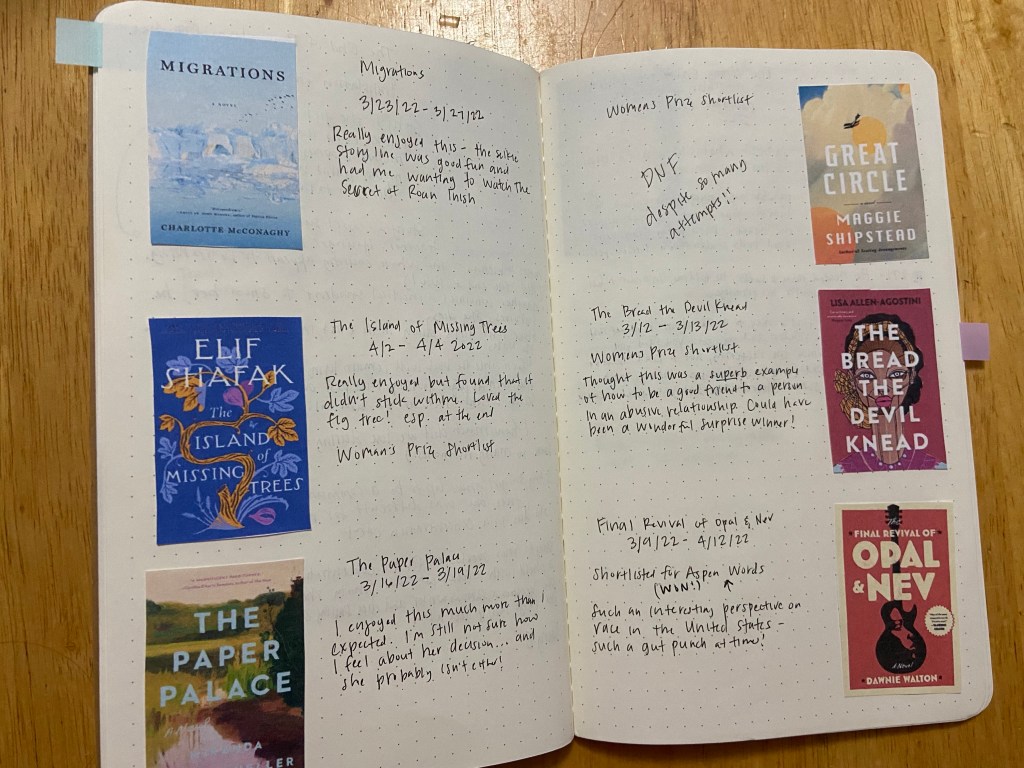 MIGRATIONS
A NOVEL
CHARLOTTE McCONAGHY
Migrations
3/23/22 - 3/27/22
Really enjoyed this - the selkie
story line was good fun and
had me wanting to watch The
Secret of Roan Inish
ELIF
SHAFAK
The
ISLAND
of
MISSING
TREES
The Island of Missing Trees
4/2 - 4/4 2022
Really enjoyed but found that it
didn't stick with me. Loved the
fig tree! esp. at the end
Woman's Prize Shortlist
THE
PAPER
PALACE
The Paper Palace
3/16/22 - 3/19/22
I enjoyed this much more than I
expected. I'm still not sure how
I feel about her decision... and
she probably isn't either!
Womens Prize Shortlist
DNF
despite so many
attempts!!
GREAT
CIRCLE
a novel
MAGGIE
SHIPSTEAD
The Bread the Devil Knead
3/12 - 3/13/22
Womens Prize Shortlist
Thought this was a superb example
of how to be a good friend to a person
in an abusive relationship. Could have
been a wonderful surprise winner!
LISA ALLEN-AGOSTINI
THE
BREAD
THE
DEVIL
KNEAD
Final Revival of Opal & Nev
3/9/22 - 4/12/22
Shortlisted for Aspen Words
(WIN!) ↑
Such an interesting perspective on
race in the United States -
such a gut punch at times!
The
FINAL REVIVAL OF
OPAL
& NEV
A Novel
DAWNIE WALTON